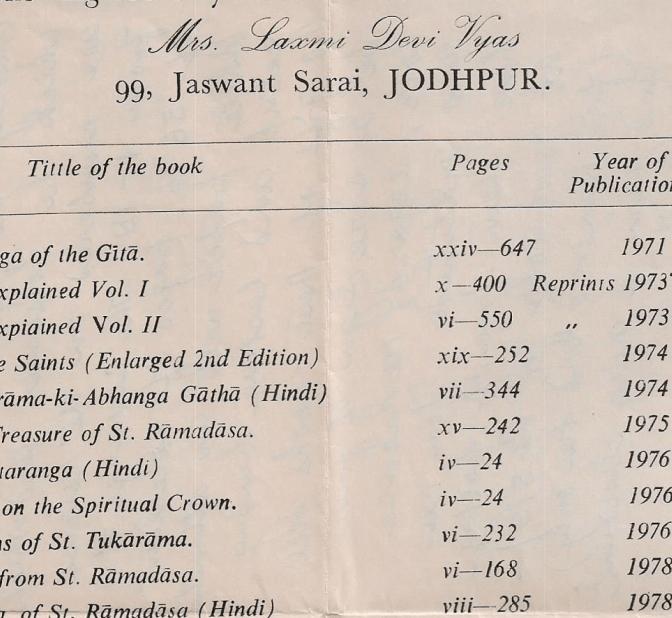 Mrs. Laxmi Devi Vyas
99, Jaswant Sarai, JODHPUR.
Tittle of the book Pages Year of
Publication
ga of the Gītā. xxiv—647 1971
xplained Vol. I x—400 Reprints 1973
xpiained Vol. II vi—550 „ 1973
e Saints (Enlarged 2nd Edition) xix—252 1974
rāma-ki-Abhanga Gāthā (Hindi) vii—344 1974
Treasure of St. Rāmadāsa. xv—242 1975
uaranga (Hindi) iv—24 1976
on the Spiritual Crown. iv—24 1976
ns of St. Tukārāma. vi—232 1976
from St. Rāmadāsa. vi—168 1978
of St. Rāmadāsa (Hindi) viii—285 1978